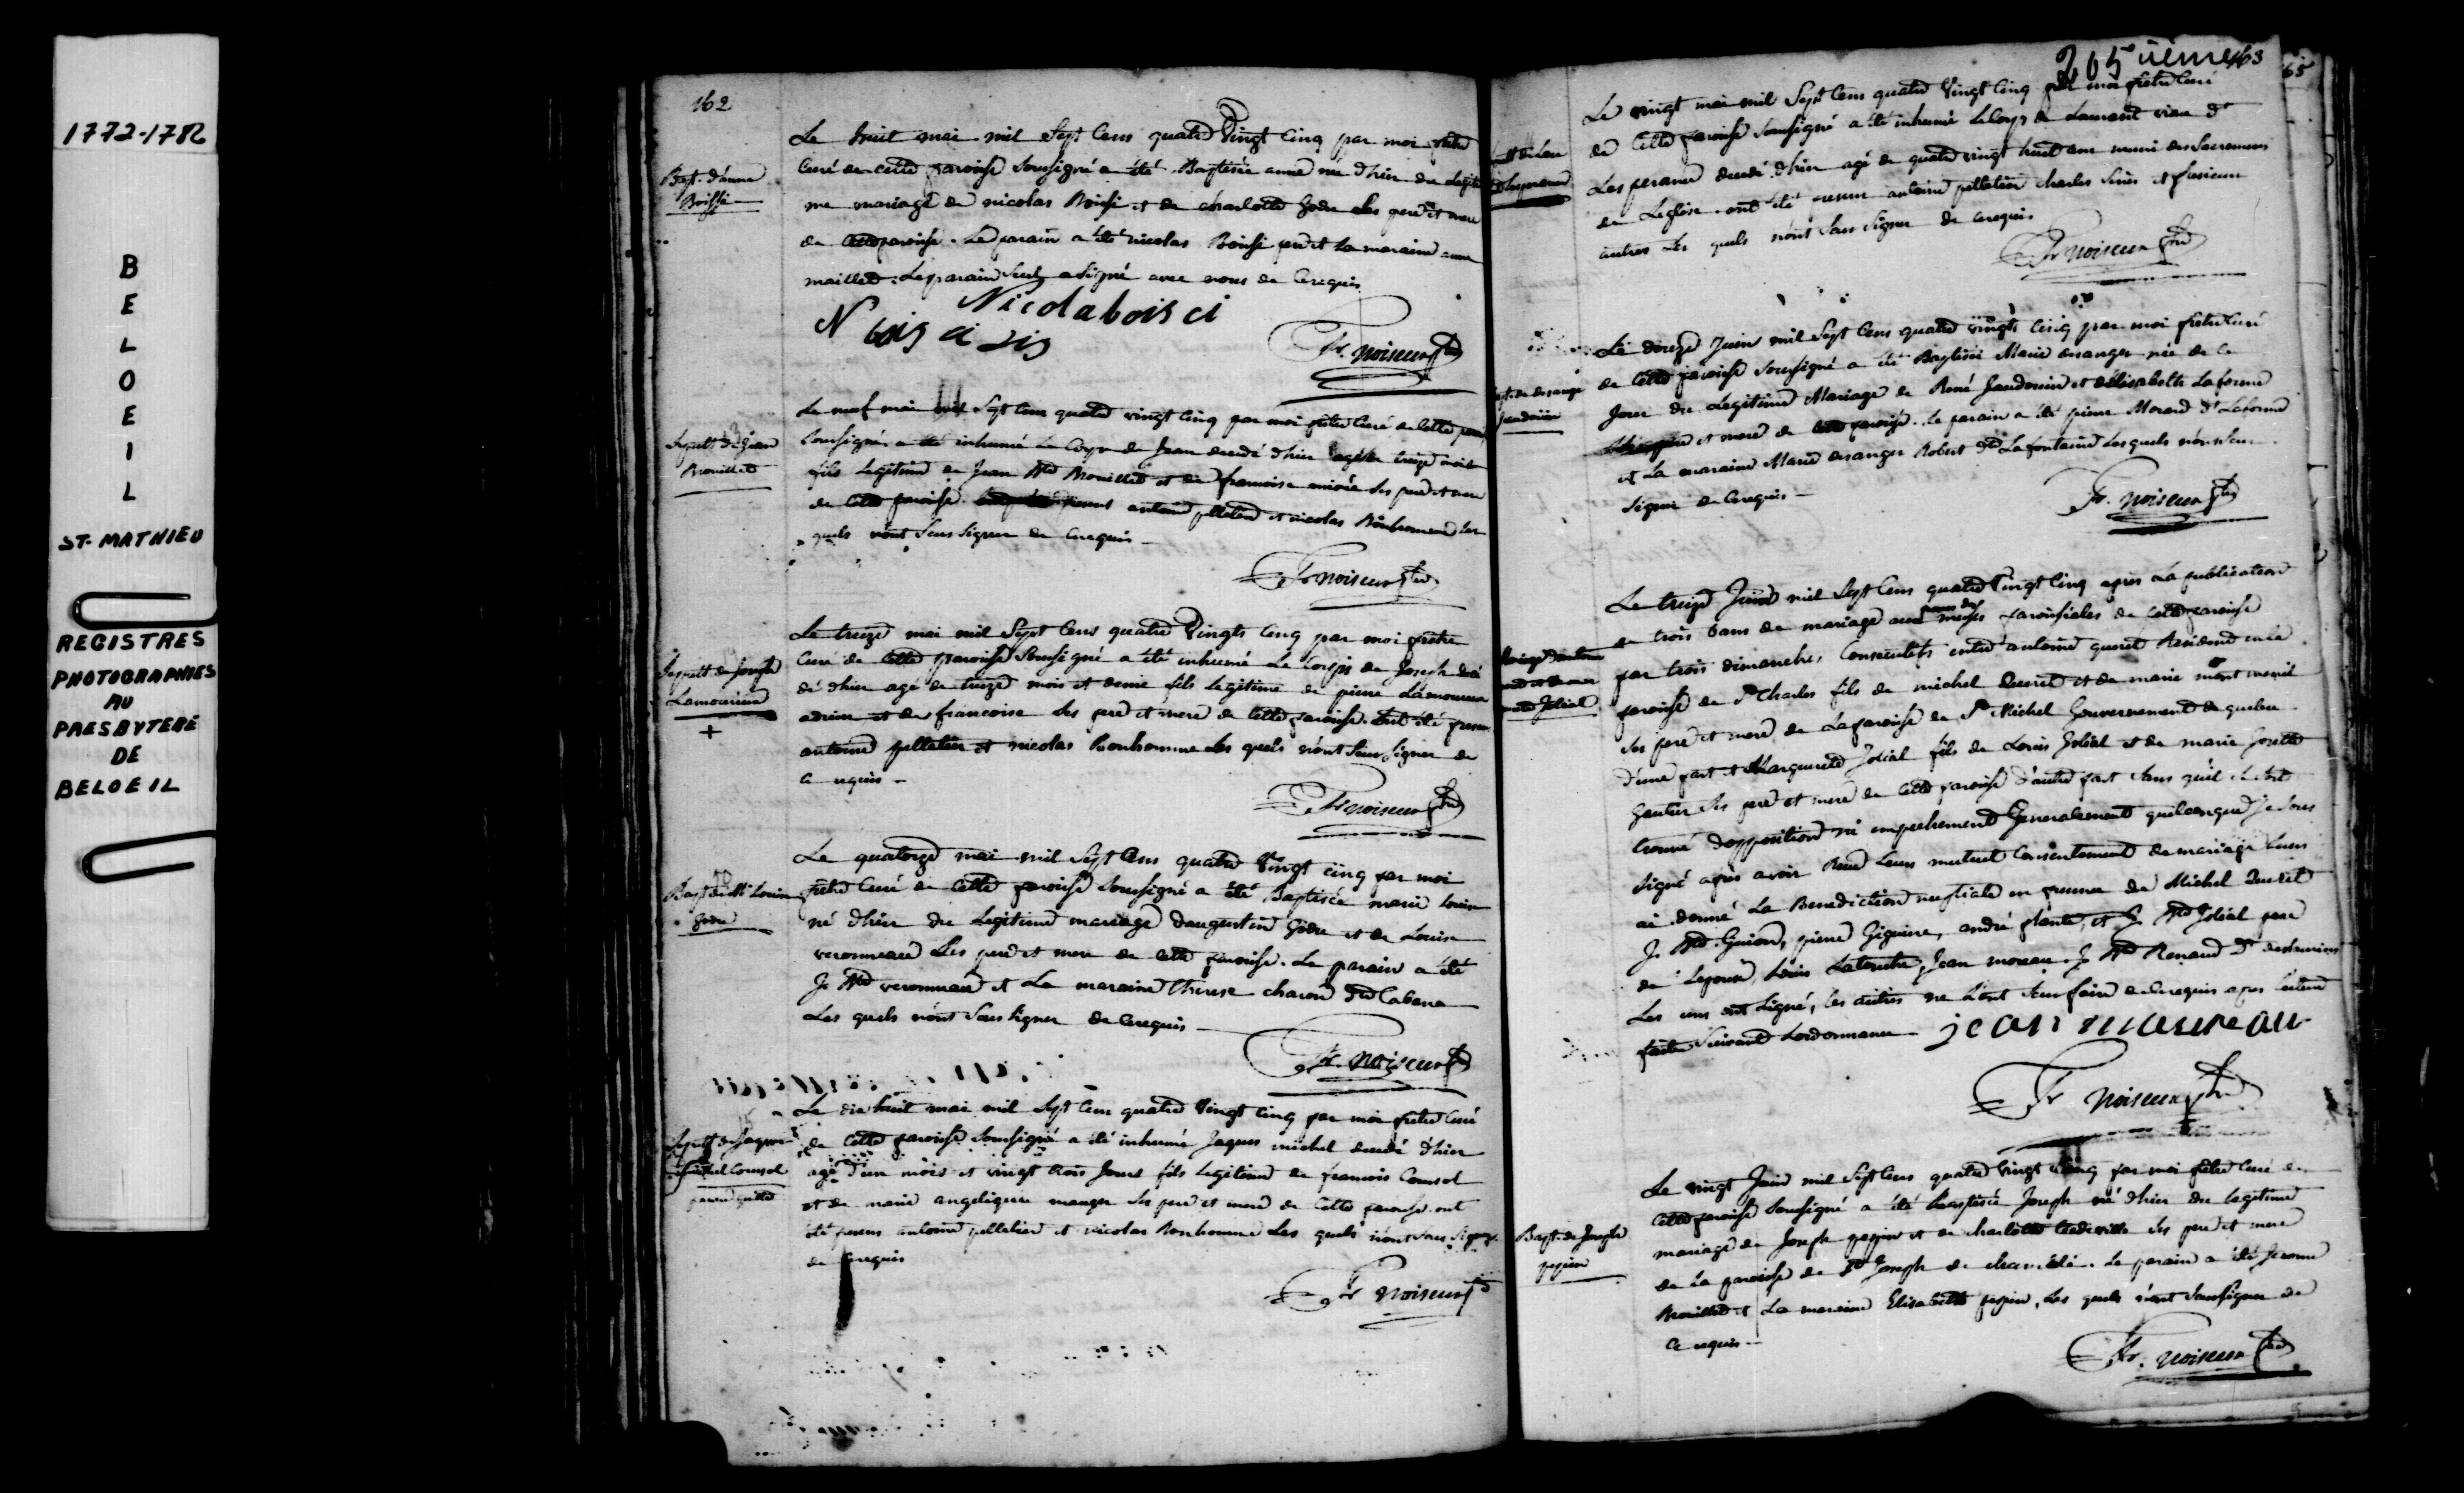 1772-1782
BELOEIL
ST-MATHIEU
REGISTRES
PHOTOGRAPHIES
AU
PRESBYTERE
DE
BELOEIL
162
Bapt. d'anne
Boissi
Le huit mai mil Sept Cens quatre Vingt Cinq par moi prêtre
Curé de cette paroisse Soussigné a été Baptisée anne né d'hier du Legiti
me mariage de nicolas Boissi et de charlotte Godu Ses pere et mere
de Cette paroisse. Le parain a été nicolas Boissi pere et La maraine anne
maillet. Le parain Seul a Signé avec nous de Ce requis
Nicolaboisci
N
Fr. noiseux ptre
Sepult. de Jean
Brouillet
Le neuf mai mil Sept Cens quatre vingt Cinq par moi prêtre Curé de Cette paroisse
Soussigné a été inhumé Le Corps de Jean decedé d'hier agé de treize mois
fils Legitime de Jean Bte Brouillet et de francoise Ses pere et mere
de Cette paroisse presens antoine pelletier et nicolas Bonhomme Les
quels n'ont Sceu Signer de Ce requis
Fr noiseux ptre
Sepult de Joseph
Lamoureux
+
Le treize mai mil Sept Cens quatre Vingts Cinq par moi prêtre
Curé de Cette paroisse Soussigné a été inhumé Le Corps de Joseph dece
dé d'hier agé de treize mois et demie fils Legitime de pierre Lamoureux
et de francoise Ses pere et mere de Cette paroisse. Ont été presens
antoine pelletier et nicolas Bonhomme Les quels n'ont Sceu Signer de
Ce requis
Fr noiseux ptre
Bapt de M Louise
Godu
Le quatorze mai mil Sept Cens quatre Vingt Cinq par moi
prêtre Curé de Cette paroisse Soussigné a été Baptisée marie Louise
né d'hier du Legitime mariage d'augustin Godu et de Louise
veronneau Ses pere et mere de Cette paroisse. Le parain a été
J. Bte veronneau et La maraine therese charon dte Cabana
Les quels n'ont Sceu Signer de Ce requis
Fr. noiseux ptre
Sepult de Jaques
michel Coursol
Le dix huit mai mil Sept Cens quatre Vingt Cinq par moi prêtre Curé
de Cette paroisse Soussigné a été inhumé Jaques michel decedé d'hier
agé d'un mois et vingt trois Jours fils Legitime de francois Coursol
et de marie angelique Ses pere et mere de Cette paroisse ont
été presens antoine pelletier et nicolas Bonhomme Les quels n'ont Sceu Signer
de Ce requis
Fr noiseux ptre
205 ième 163
65
Le vingt mai mil Sept Cens quatre Vingt Cinq par moi prêtre Curé
de Cette paroisse Soussigné a été inhumé Le Corps de Laurent dt
Lesperance decedé d'hier agé de quatre vingt huit ans muni des Sacremens
de Leglise ont été presens antoine pelletier charles et plusieurs
autres Les quels n'ont Sceu Signer de Ce requis
Fr noiseux ptre
Le douze Juin mil Sept Cens quatre vingts Cinq par moi prêtre Curé
de Cette paroisse Soussigné a été Baptisée Marie desanges née de Ce
Jour du Legitime Mariage de René Jaudouin et d'Elisabette Laforme
pere et mere de Cette paroisse. Le parain a été pierre Morand dt Laforme
et La maraine Marie desanges Robert dte Lafontaine Lesquels n'ont Sceu
Signer de Ce requis
Fr. noiseux ptre
Le treize Juin mil Sept Cens quatre Vingt Cinq après La publication
de trois bans de mariage aux messes paroissiales de Cette paroisse
par trois dimanches Consecutifs entre antoine queret Residens en la
paroisse de St Charles fils de michel queret et de marie
Ses pere et mere de La paroisse de St Michel Gouvernement de quebec
d'une part et Marguerite Jolial fils de Louis Jolial et de marie Josette
Gautier Ses pere et mere de Cette paroisse d'autre part Sans qu'il se Soit
trouvé d'opposition ni empechement Generalement quelconque Je Sous
Signé après avoir Reçu Leurs mutuel Consentement de mariage Leurs
ai donné La Benediction nuptiale en presence de Michel Queret
J. Bte Guion, pierre Giguiere, andré plante, et J. Bte Jolial pere
de Lepouse, Louis Latouche, Jean moreau J Bte Renaud dt
Les uns ont Signé, les autres ne L'ont Sceu faire de Ce requis apres lecture
faite Suivant Lordonnance jean maureau
Fr noiseux ptre
Bapt. de Joseph
pepin
Le vingt Juin mil Sept Cens quatre Vingt Cinq par moi prêtre Curé de
Cette paroisse Soussigné a été baptisé Joseph né d'hier du legitime
mariage de Joseph pepin et de charlotte Ses pere et mere
de la paroisse de St Joseph de chambli. Le parain a été Jerome
Brouillet et La maraine Elisabette pepin, Les quels n'ont Sceu Signer de
Ce requis
Fr. noiseux ptre